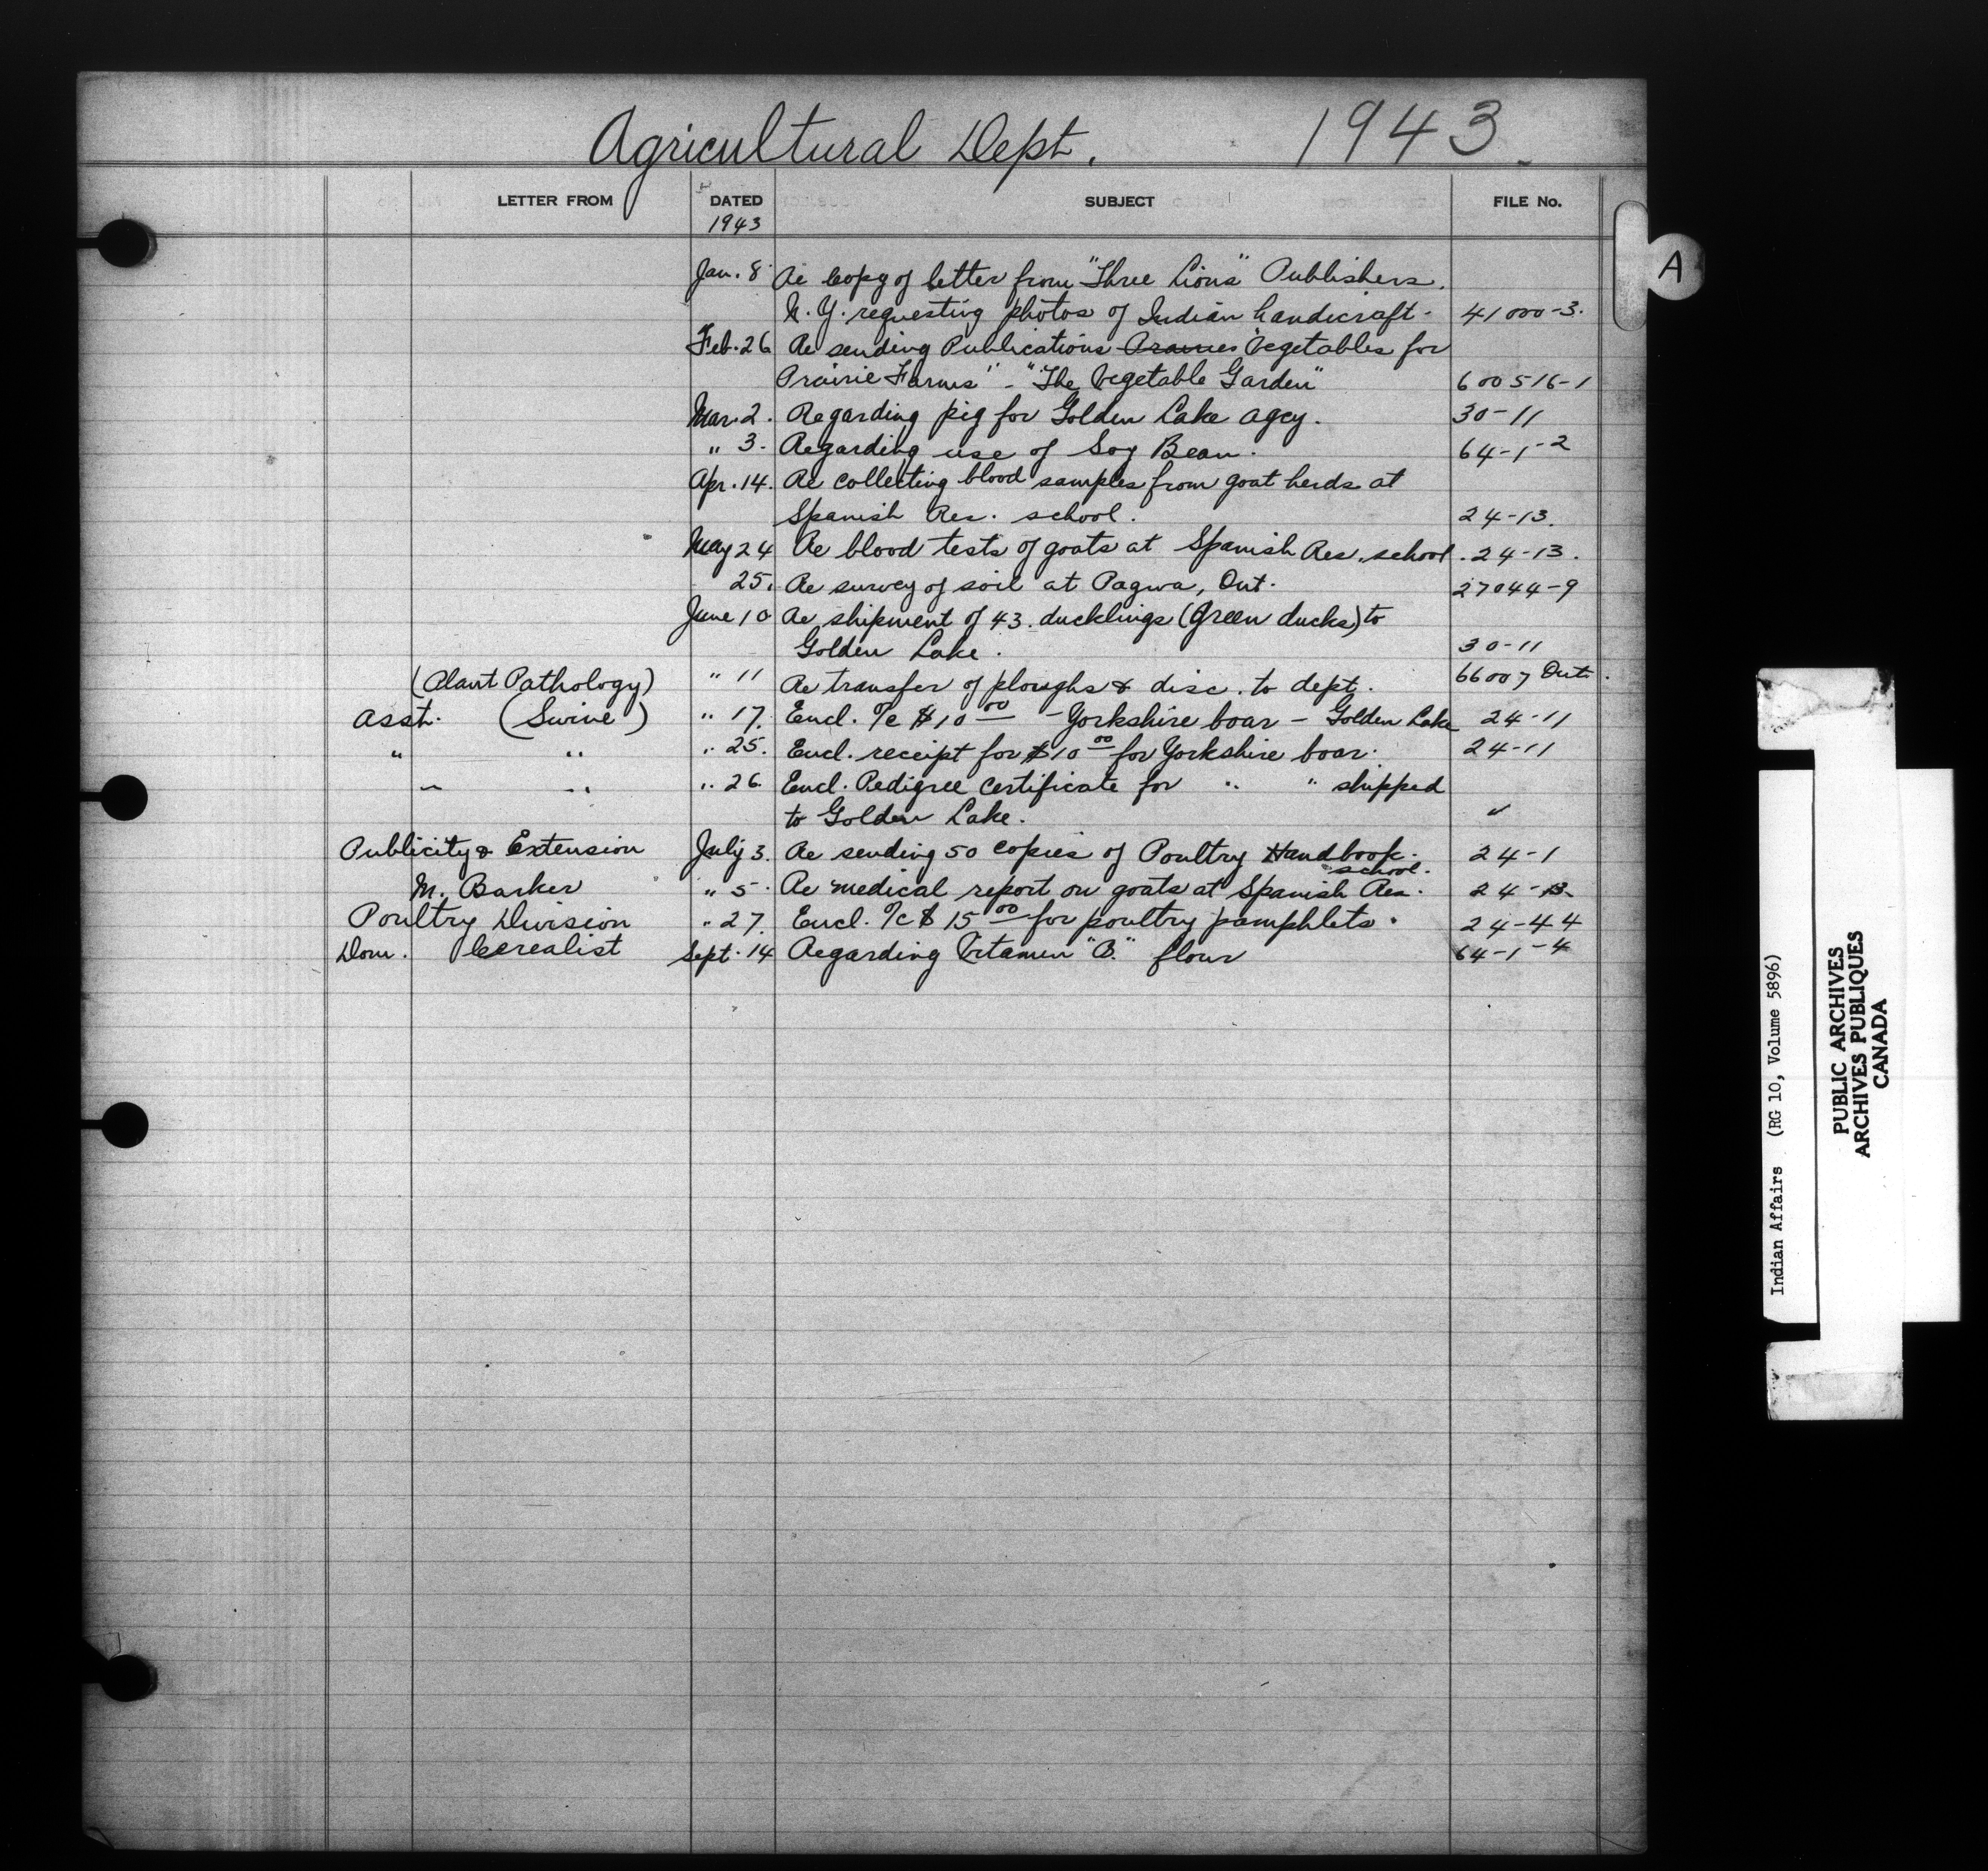 Agricultural Dept. 1943.
LETTER FROM DATED SUBJECT FILE No.
1943
A
Jan. 8. Re Copy of letter from "Three Lions" Publishers.
N. Y. requesting photos of Indian handicraft. 41000-3.
Feb. 26 Re sending Publications Prairies "Vegetables for
Prairie Farms" - "The Vegetable Garden" 600516-1
Mar. 2. Regarding pig for Golden Lake Agcy. 30-11
" 3. Regarding use of Soy Bean. 64-1-2
Apr. 14. Re collecting blood samples from goat herds at
Spanish Res. school. 24-13.
May 24 Re blood tests of goats at Spanish Res. school. 24-13.
25. Re survey of soil at Pagwa, Ont. 27044-9
June 10 Re shipment of 43 ducklings (green ducks) to
Golden Lake. 30-11
(Plant Pathology) " 11 Re transfer of ploughs & disc. to dept. 66007 Ont.
Asst. (Swine) " 17. Encl. /c $10 00 - Yorkshire boar - Golden Lake 24-11
" " " 25. Encl. receipt for $10 00 for Yorkshire boar. 24-11
" " " 26. Encl. Pedigree Certificate for " " shipped
to Golden Lake. "
Publicity & Extension July 3. Re sending 50 copies of Poultry Handbook. 24-1
M. Barker " 5. Re medical report on goats at Spanish Res. school. 24-13
Poultry Division " 27. Encl. /c $15 00 for poultry pamphlets. 24-44
Dom. Cerealist Sept. 14 Regarding Vitamin "B" flour 64-1-4
Indian Affairs (RG 10, Volume 5896)
PUBLIC ARCHIVES
ARCHIVES PUBLIQUES
CANADA